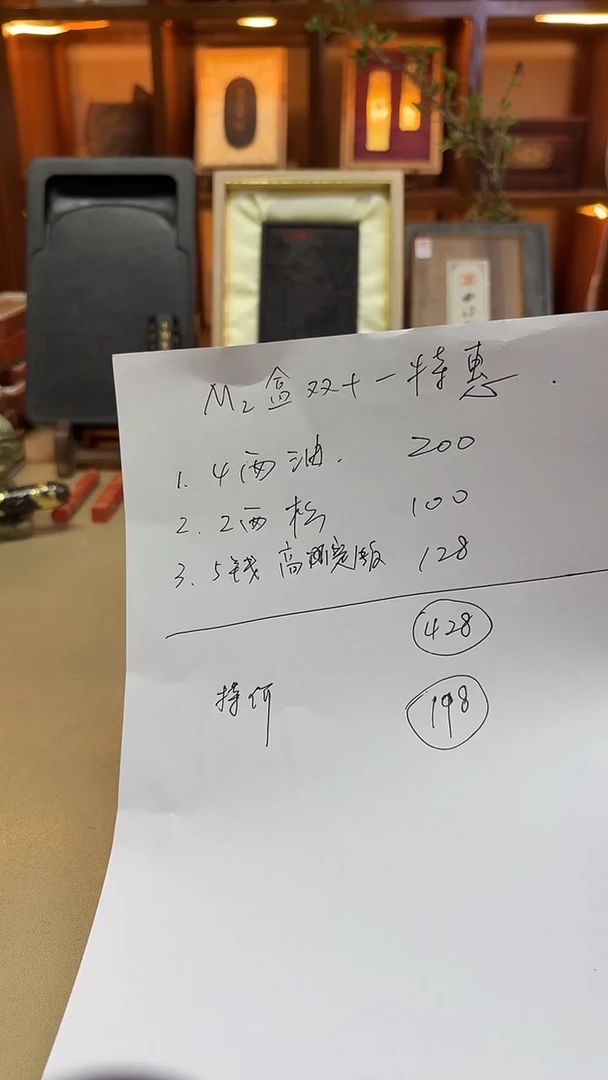 M2盒双十一特惠.
1. 4两油. 200
2. 2两松 100
3. 5钱 高配定版 128
428
特价 198